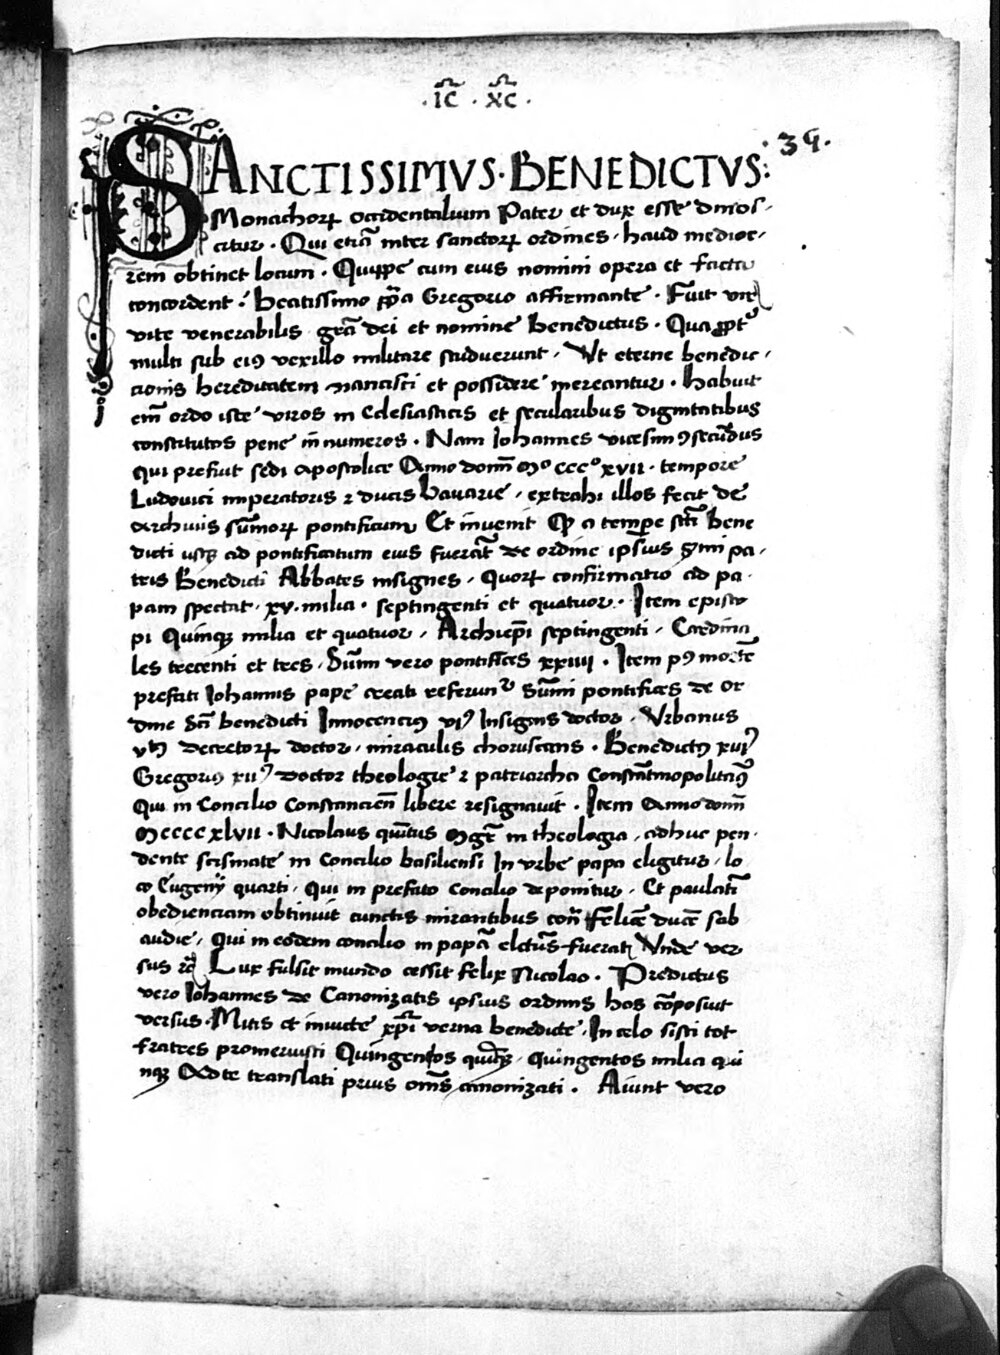 ·IC̅ · XC̅ ·
39.
SANCTISSIMVS · BENEDICTVS:
Monachorꝝ occidentalium Pater et dux esse dinos-
citur · Qui etiā inter sanctorꝝ ordines · haud medioc-
rem obtinet locum · Quippe cum eius nomini opera et facta
concordent : beatissimo pp̄a Gregorio affirmante · Fuit vir
vite venerabilis grā dei et nomine benedictus · Qua ꝓpt'
multi sub eiꝰ vexillo militare studuerunt · Vt eterne benedic-
tionis hereditatem nancisci et possidere mereantur · habuit
em̄ ordo iste viros in Eclesiasticis et secularibus dignitatibus
constitutos pene in̄numeros · Nam Iohannes vicesim ꝯsecūdus
qui prefuit sedi apostolice Anno domī Mº cccº xvii · tempore
Ludovici imperatoris ⁊ ducis bavarie · extrahi illos fecit de
archiuis sūmorꝝ pontificum Et invenit Ꝙ a tempe scī bene
dicti usqꝫ ad pontificatum eius fuerāt de ordine ipsius pa-
tris Benedicti Abbates insignes · Quorꝝ confirmatio ad pa-
pam spectat · xv · milia · septingenti et quatuor · Item episco
pi Quinqꝫ milia et quatuor · Archiepī septingenti · Cardina
les trecenti et tres · Sūmi vero pontifices xxiiii · Item pꝰ mortē
prefati Iohannis pape creati referunᵗ Sūmi pontifices de or
dine scī benedicti Innocenciꝰ viꝰ Insignis doctor · Vrbanus
vtꝰ decretorꝝ doctor · miraculis choruscans · Benedictꝰ xiiiꝰ
Gregoriꝰ xiiꝰ doctor theologie ⁊ patriarcha Constātinopolitanꝰ
Qui in Concilio Constancien̄ libere resignauit · Item anno domī
Mcccc xlvii · Nicolaus quītus mgr̄ in theologia · adhuc pen-
dente scismate in Concilio basiliensi In vrbe papa eligitur · lo
co Eugenÿ quarti · Qui in prefato Concilio deponitur · Et paulatī
obedienciam obtinuit cunctis mirantibus con̄ Felicē ducē sab
audie · Qui in eodem concilio in papā elctūs fuerat Vnde ver
sus Lux fulsit mundo cessit felix Nicolao · Predictus
vero Iohannes de Canonizatis ipsius ordinis hos cōposuit
versus · Mitis et inuicte xp̄i verna benedicte · In celo sisti tot
fratres promeruisti Quingentos · quingentos milia qui
nqꝫ Ad te translati prius om̄s canonizati · Aiunt vero